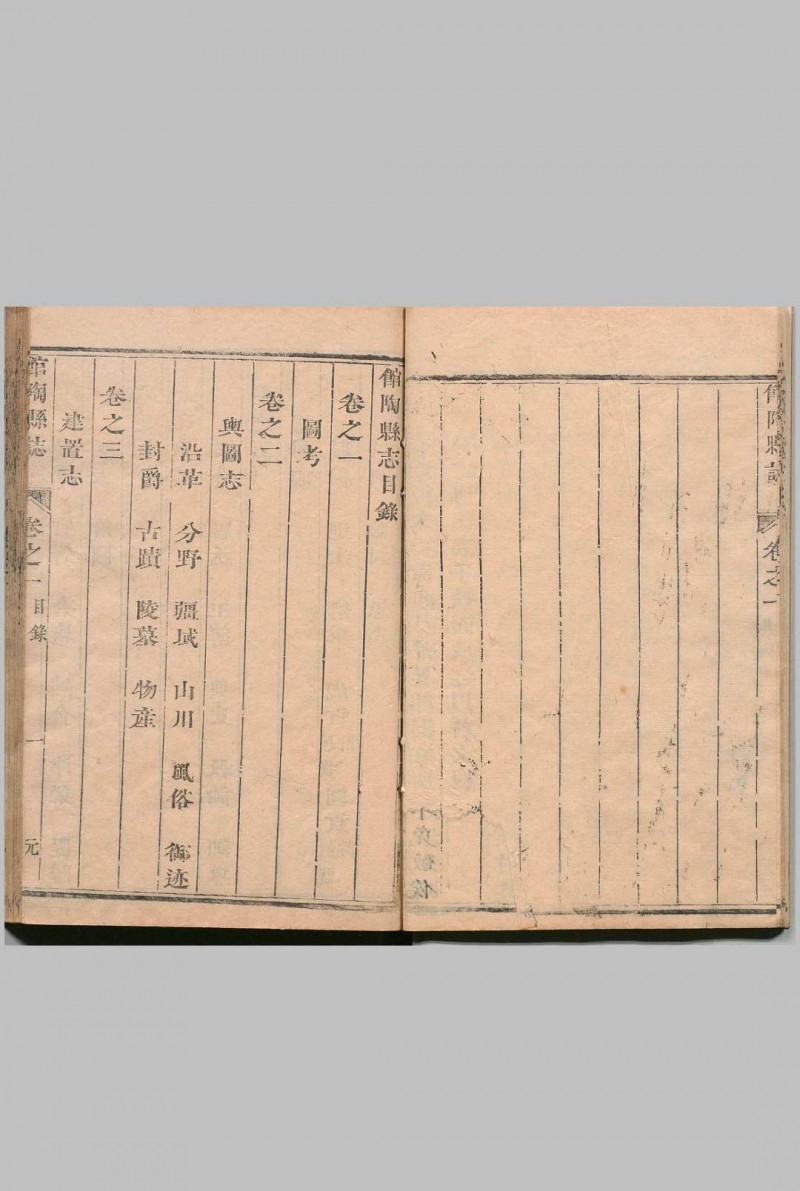 館陶縣志
卷之一
館陶縣志目錄
卷之一
圖考
卷之二
輿圖志
沿革 分野 疆域 山川 風俗 御迹
封爵 古蹟 陵墓 物產
卷之三
建置志
館陶縣誌 卷之一 目錄 一 元